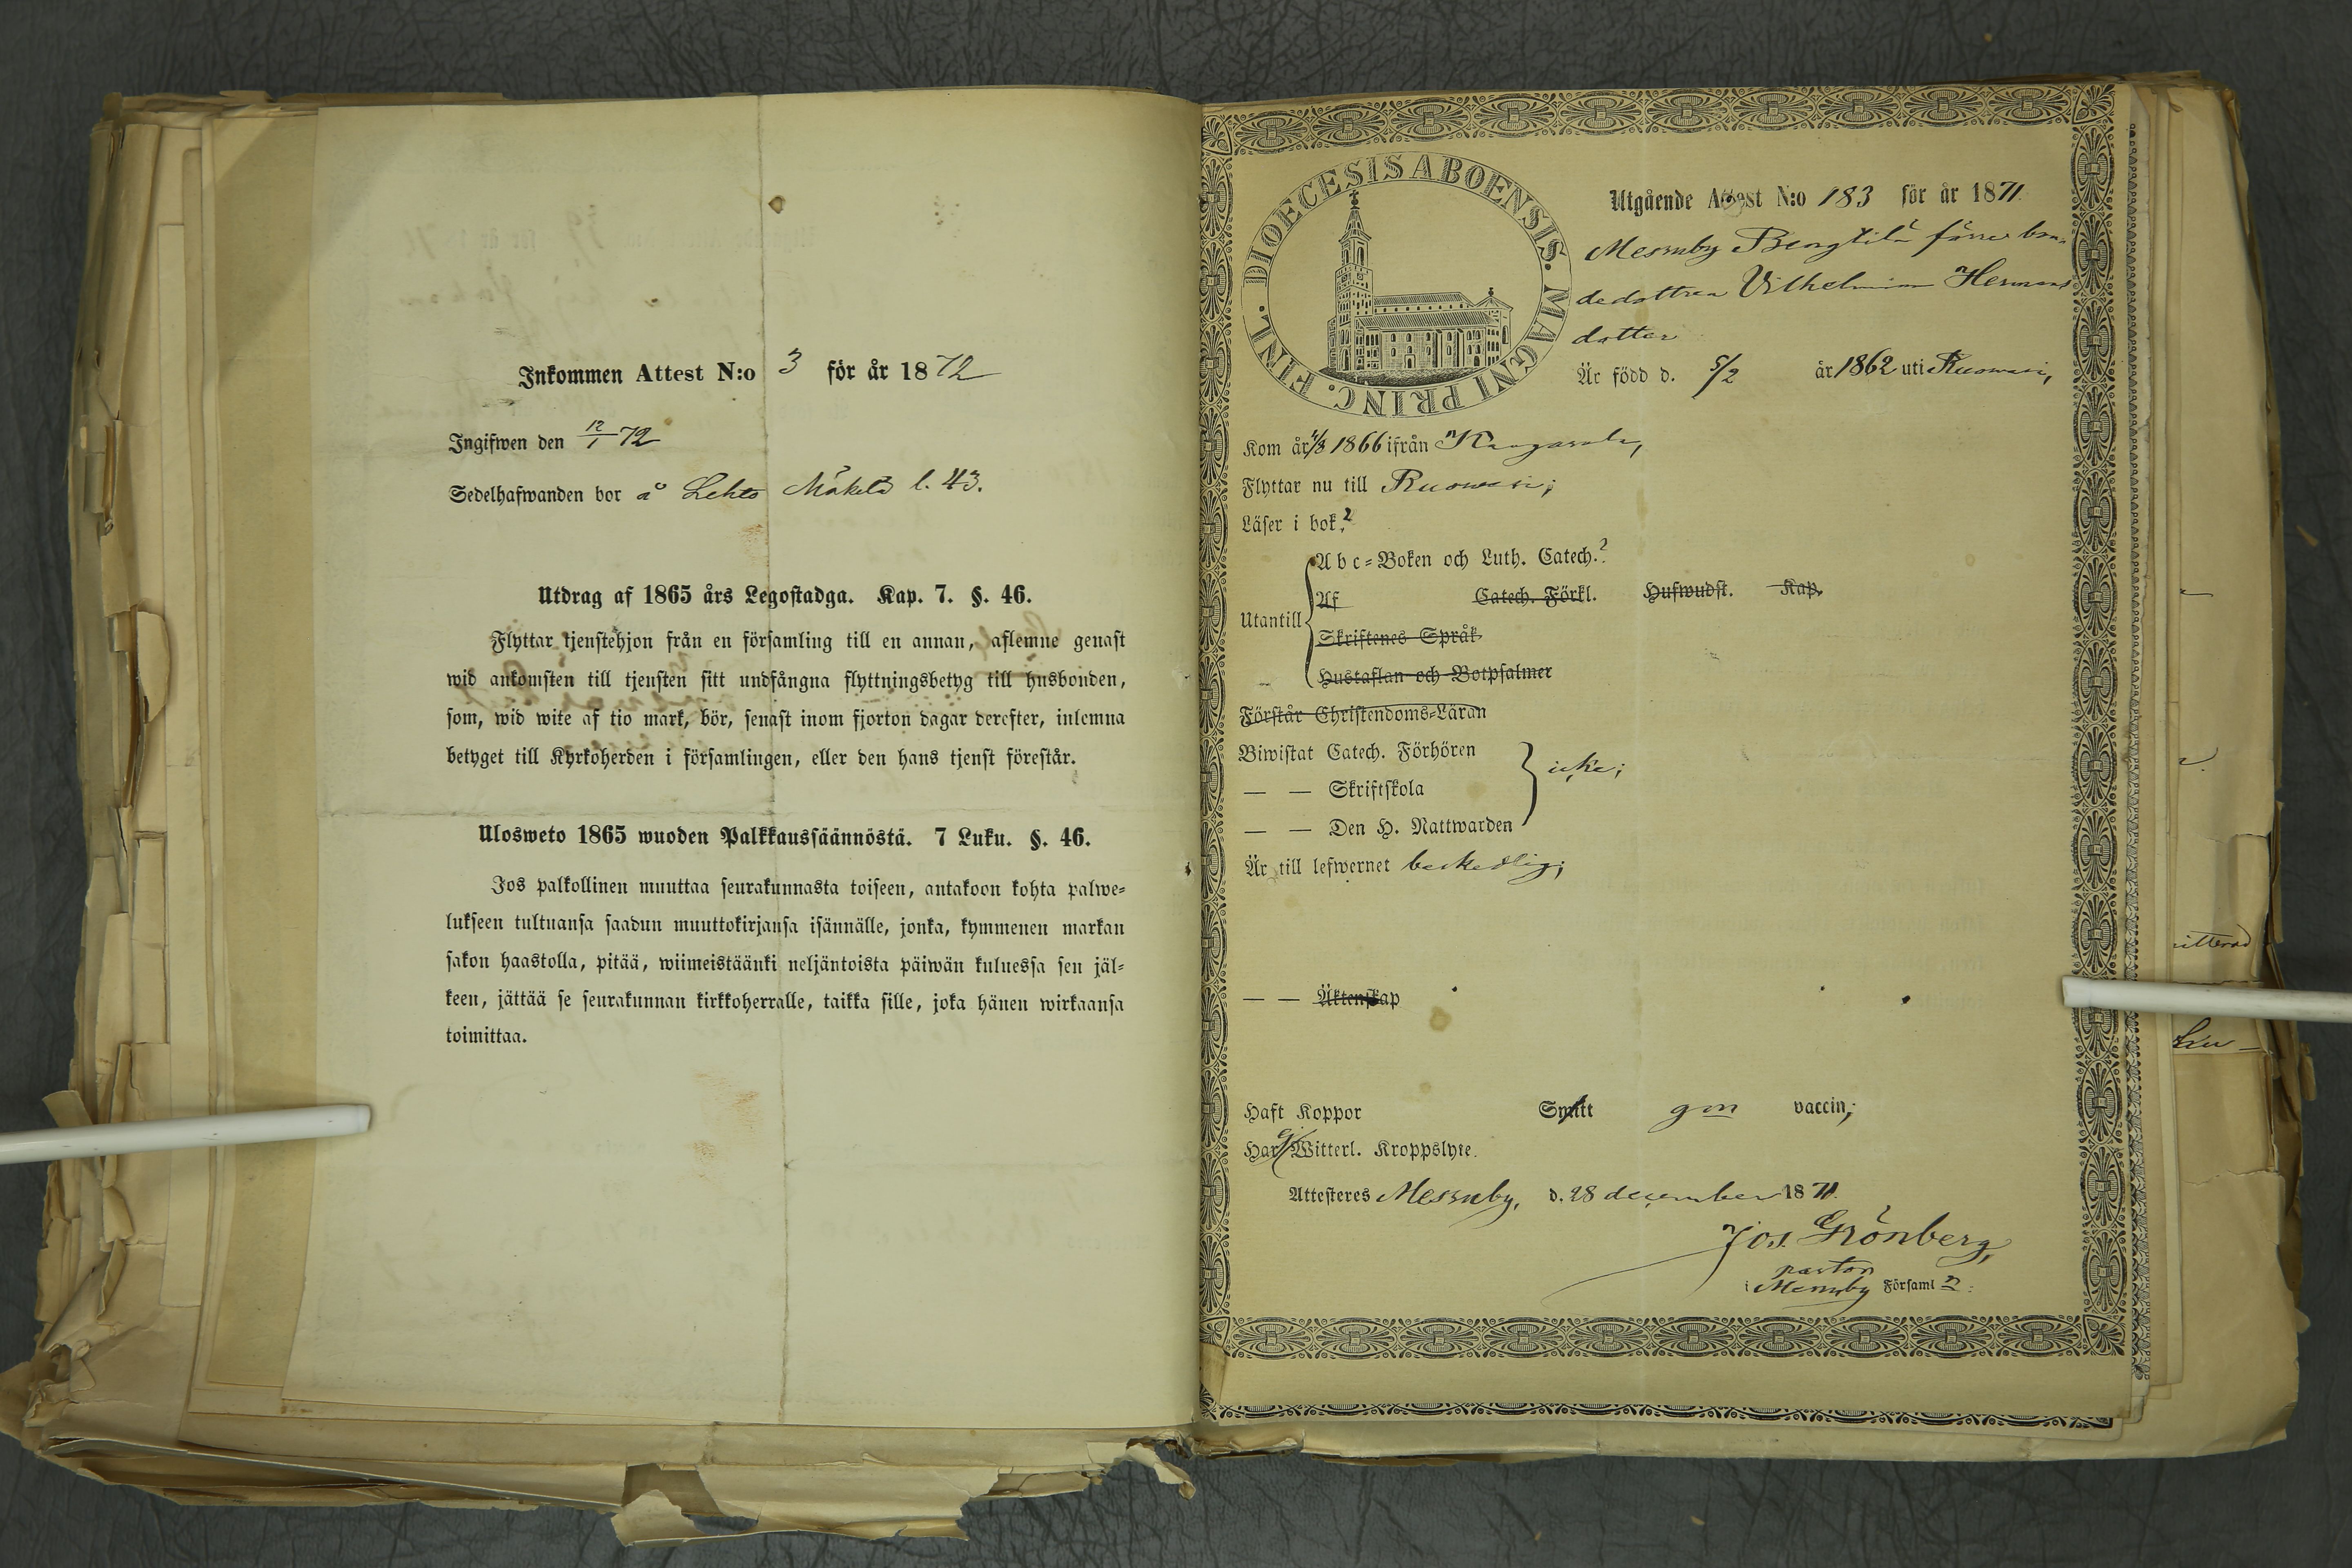 Inkommen Attest N:o 3 för år 1872
Ingifwen den 12/1 72
Sedelhafwanden bor å Lehto Mäkelä l. 43.
Utdrag af 1865 års Legostadga. Kap. 7. §. 46.
Flyttar tjenstehjon från en församling till en annan, aflemne genast
wid ankomsten till tjensten sitt undfångna flyttningsbetyg till husbonden,
som, wid wite af tio mark, bör, senast inom fjorton dagar derefter, inlemna
betyget till Kyrkoherden i församlingen, eller den hans tjenst förestår.
Ulosweto 1865 wuoden Palkkaussäännöstä. 7 Luku. §. 46.
Jos palkollinen muuttaa seurakunnasta toiseen, antakoon kohta palwe-
lukseen tultuansa saadun muuttokirjansa isännälle, jonka, kymmenen markan
sakon haastolla, pitää, wiimeistäänki neljäntoista päiwän kuluessa sen jäl-
keen, jättää se seurakunnan kirkkoherralle, taikka sille, joka hänen wirkaansa
toimittaa.
DIOECESIS ABOENSIS. MAGNI PRINC. FINL.
Utgående Attest N:o 183 för år 1871.
Messuby Bengtilä förre bon-
dedottren Vilhelmina Hermans
dotter
Är född d. 5/2 år 1862 uti Ruowesi,
Kom år 4/3 1866 ifrån Kangasala,
Flyttar nu till Ruowesi;
Läser i bok, 2
Abc-Boken och Luth. Catech. 2
Af Catech. Förkl. Hufwudst. Kap.
Utantill
Skriftenes Språk
Hustaflan och Botpsalmer
Förstår Christendoms-Läran
Biwistat Catech. Förhören
— — Skriftskola icke;
— — Den H. Nattwarden
Är till lefwernet beskedlig;
— — Äktenskap
Haft Koppor Smitt gm vaccin;
Har ej Witterl. Kroppslyte.
Attesteres Messuby, d. 28 december 1871.
Jos. Grönberg,
pastor
i Messuby Församl n:
itterad